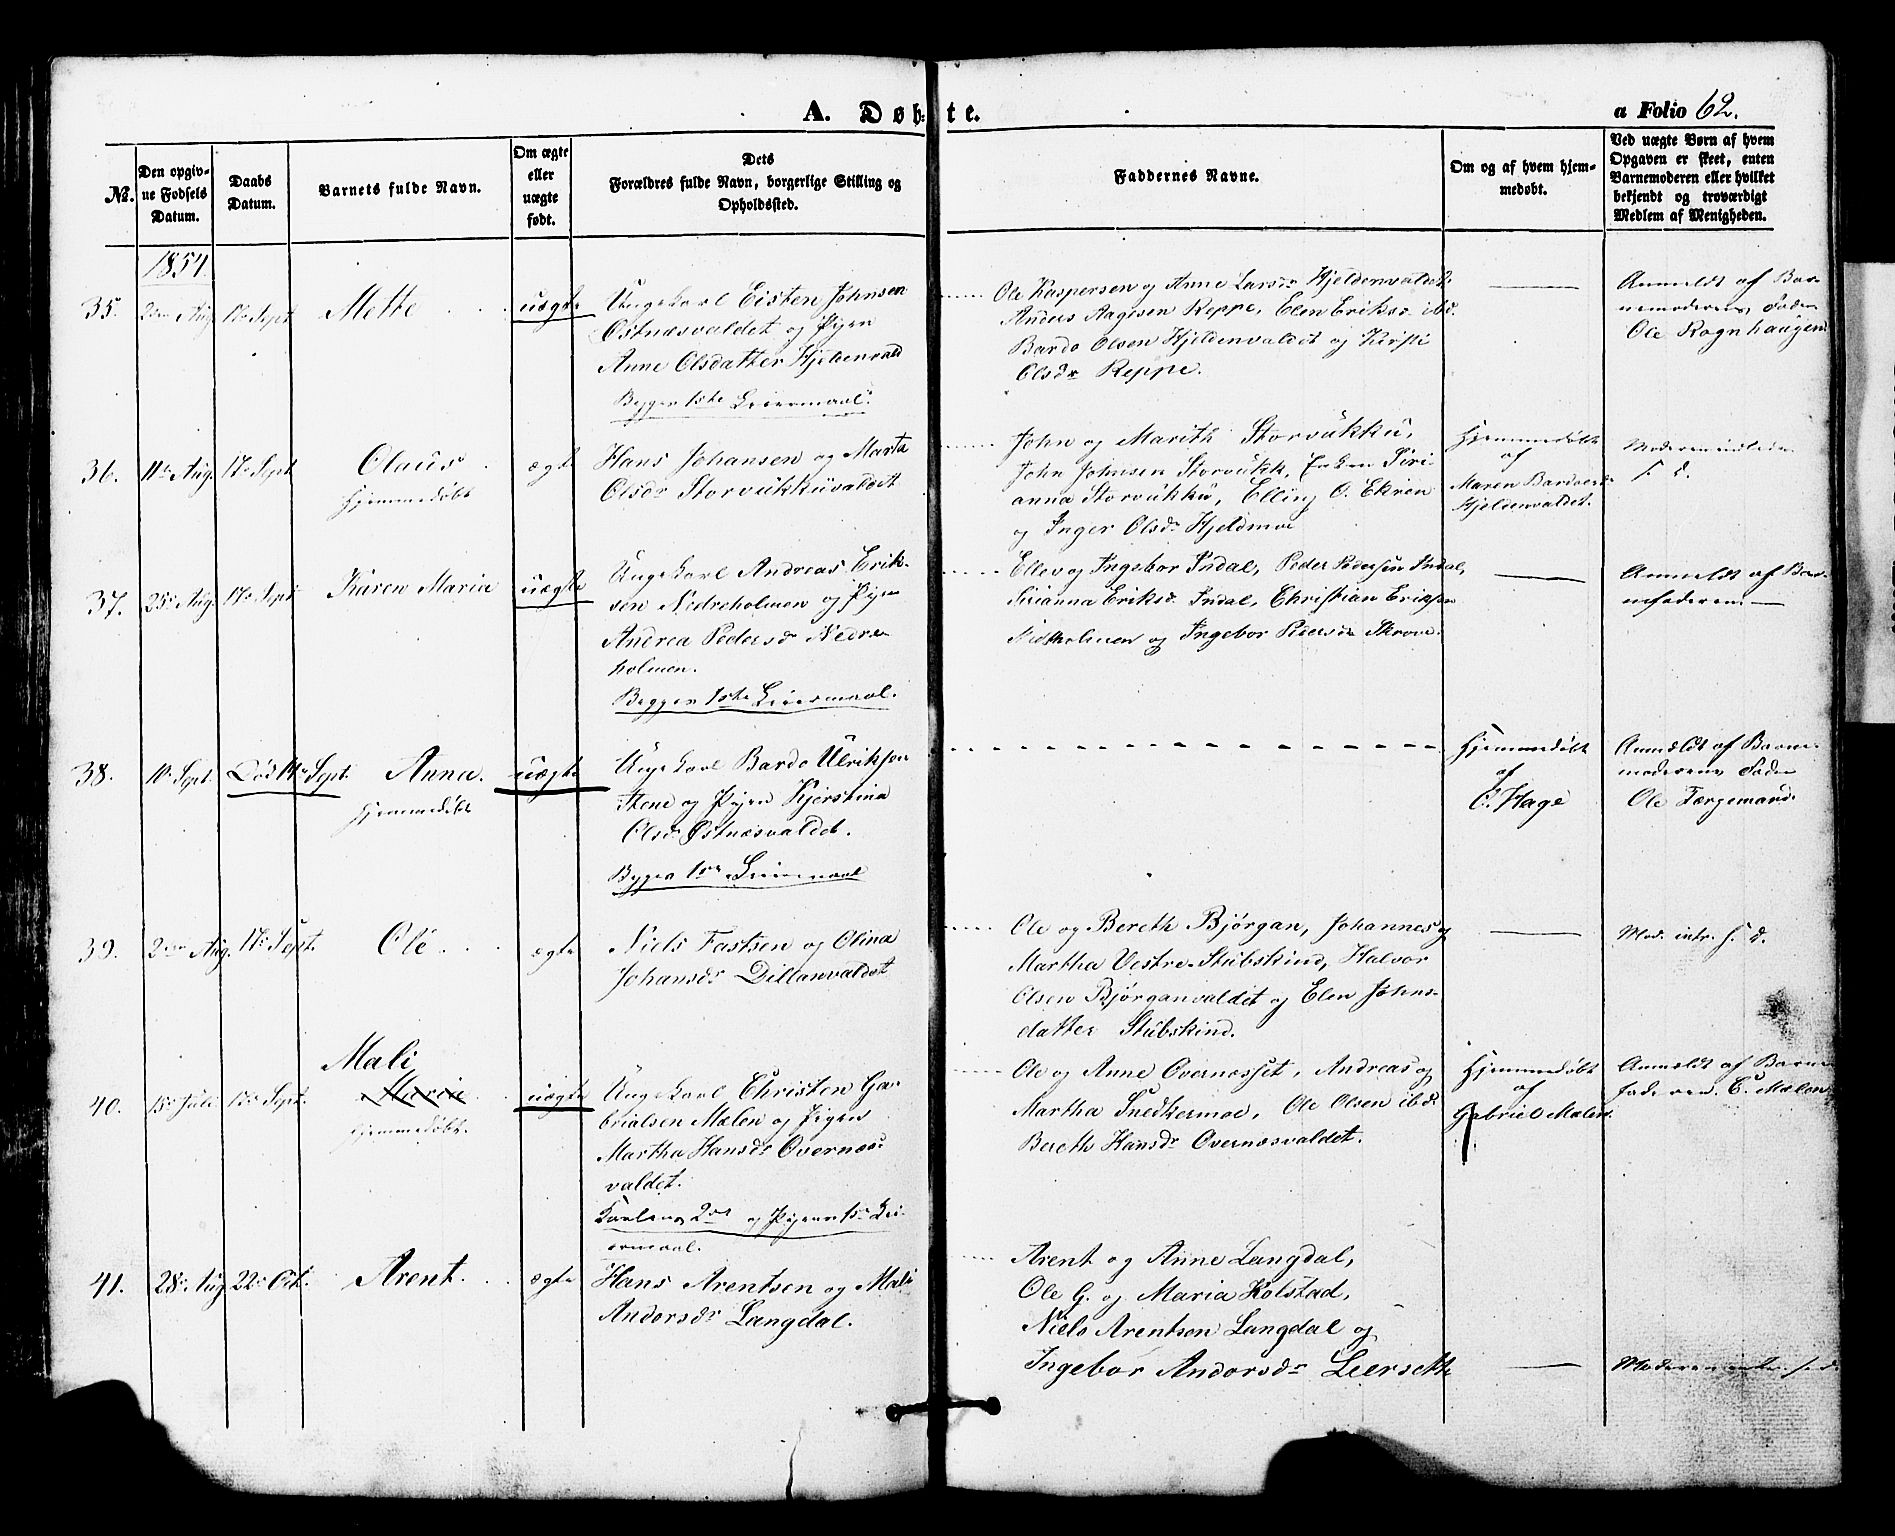 A. Døb-te.
a Folio 62.
No.
Den opgiv-
ne Fødsels
Datum.
Daabs
Datum.
Barnets fulde Navn.
Om ægte
eller
uægte
født.
Dets
Forældres fulde Navn, borgerlige Stilling og
Opholdssted.
Faddernes Navne.
Om og af hvem hjem-
medøbt.
Ved uægte Børn af hvem
Opgaven er skeet, enten
Barnemoderen eller hvilket
bekjendt og troværdigt
Medlem af Menigheden.
1854.
35. Aug. 17de Sept. Mette uægte
Ungekarl Eisten Johnsen
Østnæsvaldet og Pigen
Anne Olsdatter Hjeldenvald
Begges 1ste Leiermaal.
Ole Kaspersen og Anne Larsdr Hjeldenvaldet
Anders Aagesen Reppe, Elen Eriksdr ibd.
Bardo Olsen Hjeldenvaldet og Kirsti
Olsdr Reppe.
Anmeldt af Bar-
nemoderens Fader
Ole Rognhaugen
36. 11te Aug. 17de Sept. Olaus ægte
Hjemmedøbt
Hans Johansen og Marta
Olsdr Storvukkuvaldet
John og Marith Storvukku,
John Johnsen Storvukk, Enken Siri-
anna Storvukku, Elling O. Ekren
og Inger Olsdr Hjeldmoe
Hjemmedøbt
af
Maren Bardoesdr
Hjeldenvaldet.
Moderen indleder
s. d.
37. 25de Aug. 17de Sept. Karen Maria uægte
Ungekarl Andreas Erik-
sen Nedreholmen og Pigen
Andrea Pedersdr Nedre-
holmen.
Begges 1ste Leiermaal.
Ellev og Ingebor Indal, Peder Pedersen Indal,
Sirianna Eriksdr Indal, Christian Eriksen
Nedreholmen og Ingebor Pedersdr Skrove.
Anmeldt af Bar-
nefaderen
38. 10de Sept. Død 14de Sept. Anna. uægte
Hjemmedøbt
Ungekarl Bardo Ulriksen
Stene og Pigen Kjerstina
Olsdr Østnæsvaldet.
Begges 1ste Leiermaal
Hjemmedøbt
af
C. Hage
Anmeldt af Barne-
moderens Fader
Ole Færgemand.
39. Aug. 17de Sept. Ole ægte
Niels Fastsen og Olina
Johansdr Dillanvaldet
Ole og Bereth Bjørgan, Johannes og
Martha Vestre-Stubskind, Halvor
Olsen Bjørganvaldet og Elen Johns-
datter Stubskind.
Mod. intr. s. d.
40. 15de Juli 17de Sept. Mali
Marie uægte
Hjemmedøbt.
Ungekarl Christen Ga-
brielsen Mælen og Pigen
Martha Hansdr Overnæs-
valdet.
Karlens 2det og Pigens 1ste Lei-
ermaal.
Ole og Anne Overnesset, Andreas og
Martha Snedkermoe, Ole Olsen ibdr
Bereth Hansdr Overnæsvaldet.
Hjemmedøbt
af
Gabriel Mælen.
Anmeldt af Barne-
faderen C. Mælen
41. 28de Aug. 22de Oct. Arent. ægte
Hans Arentsen og Mali
Andorsdr Langdal.
Arent og Anne Langdal,
Ole G. og Maria Kolstad,
Niels Arentsen Langdal og
Ingebor Andorsdr Leersette
Moderen s. d.